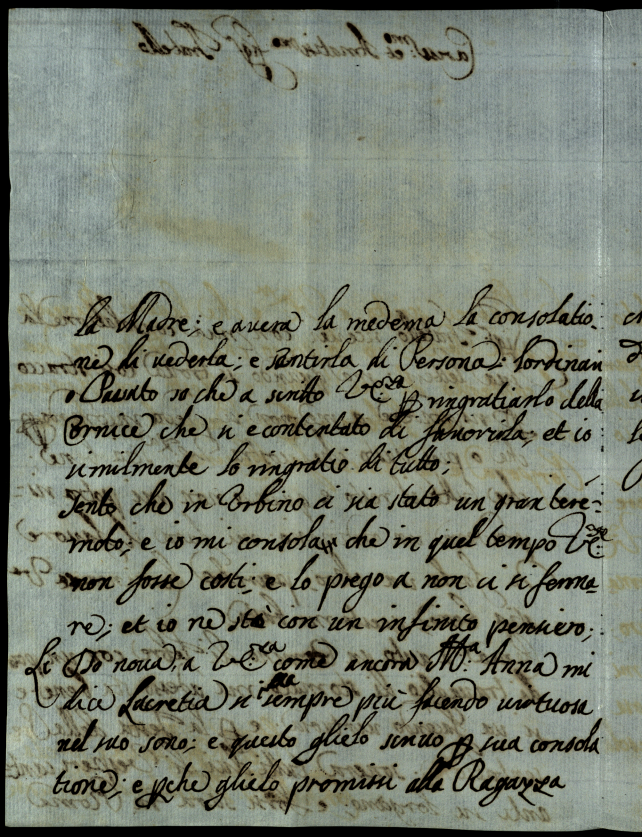 la Madre; e avera la medema la consolatio-
ne di vederla; e santirla di Persona; lordinari
o Passato so che a scritto V.S. p ringratiarlo della
Cornice che si e contentato di favorirla; et io
similmente lo ringratio di tutto;
sento che in Urbino ci sia stato un gran tere-
moto; e io mi consola che in quel tempo V.S.
non fosse costi; e lo prego a non ci si ferma-
re; et io ne stò con un infinito pensiero;
Li Do nova, a V.S. come ancora M.a Anna mi
dice Lucretia si sempre più facendo virtuosa
nel suo sono; e questo glielo scrivo p sua consola
tione; e pche glielo promissi alla Ragazza